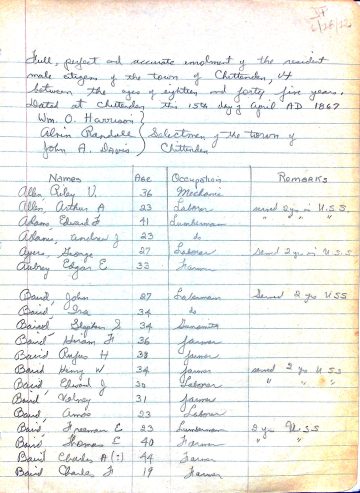 VT
6/26/22
Full, perfect and accurate enrolment of the resident
male citizens of the town of Chittenden, Vt
between the ages of eighteen and forty five years.
Dated at Chittenden this 15th day of April AD 1867
Wm. O. Harrison
Alvin Randall } Selectmen of the town of
John A. Davis Chittenden
Names Age Occupation Remarks
Allen, Riley V. 36 Mechanic
Allen, Arthur A 23 Laborer served 2 yrs in U.S.S.
Adams, Edward F 41 Lumberman " " "
Adams, Andrew J 23 do
Ayers, George 27 Laborer served 2 yrs in U.S.S
Aubrey Edgar E 33 Farmer
Baird, John 27 Laberman Served 2 yrs USS
Baird, Ira 34 do
Baird Stephen S 34 
Baird Hiram F 36 farmer
Baird Rufus H 38 farmer
Baird Henry W 34 farmer served 2 yrs U.S.S
Baird, Edward J 30 Laborer " " "
Baird Volney 31 farmer
Baird, Amos 23 Laborer
Baird, Freeman E 23 Lumberman 2 yrs U.S.S
Baird, Thomas E 40 Farmer " "
Baird Charles A (?) 44 Farmer
Baird Charles F 19 Farmer